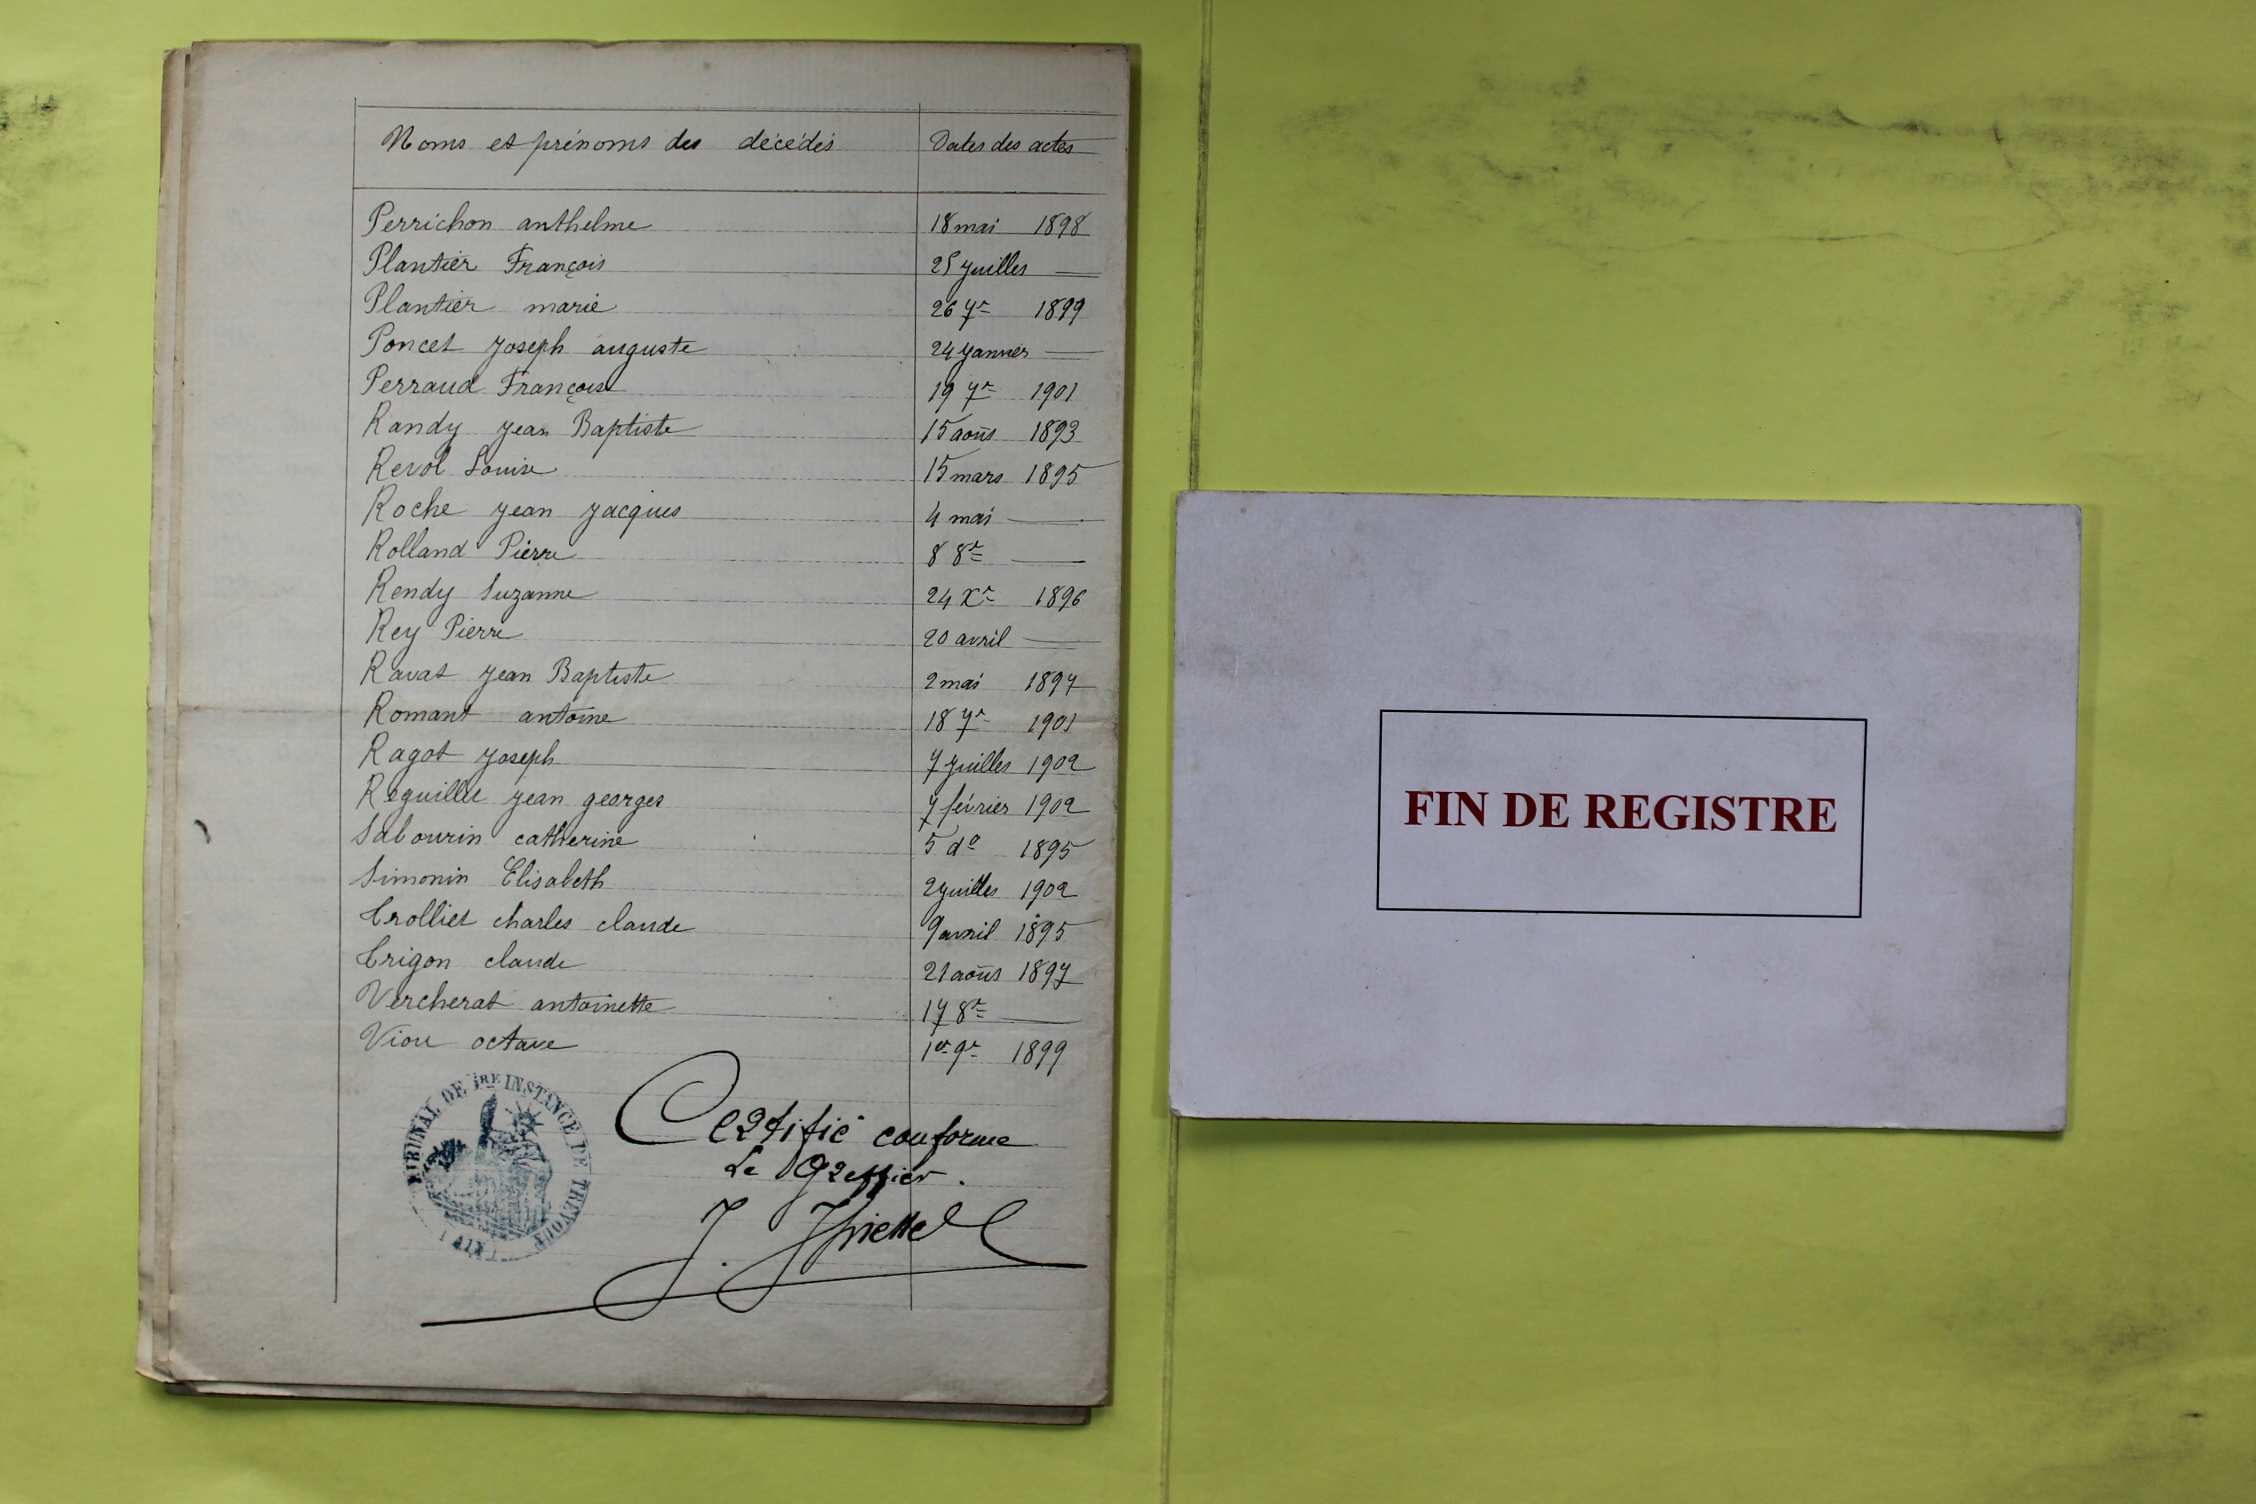 Noms et prénoms des décédés Dates des actes
Perrichon anthelme 18 mai 1898
Plantier François 25 juillet —
Plantier marie 26 7re 1899
Poncet Joseph auguste 24 janvier —
Perraud Françoise 19 7re 1901
Randy jean Baptiste 15 août 1893
Revol Louise 15 mars 1895
Roche jean jacques 4 mai —
Rolland Pierre 8 8re —
Rendy Suzanne 24 Xre 1896
Rey Pierre 20 avril —
Ravat jean Baptiste 2 mai 1897
Romant antoine 18 7re 1901
Ragot joseph 7 juillet 1902
Reguillet jean georges 7 février 1902
Sabourin catherine 5 do 1895
Simonin Elisabeth 2 juillet 1902
Trolliet charles claude 9 avril 1895
Trigon claude 21 août 1897
Vercherat antoinette 17 8re —
Viou octave 1er 9re 1899
Certifié conforme
Le Greffier.
TRIBUNAL DE 1RE INSTANCE DE TREVOUX (AIN)
FIN DE REGISTRE